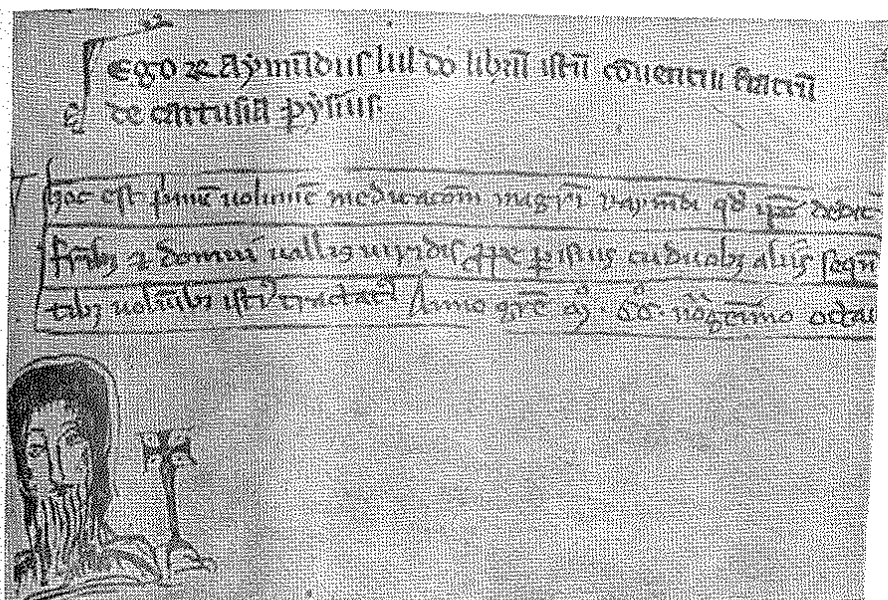 Ego Raymūdus lul dō librū istū cōuentui fratrū
de cartusia pỳsius
hoc est primū uolumē meditacōm magr̄i raymūdi qd̄ ip̄e dedit
fr̄ibꝫ ⁊ domui uallis uiridis ꝓpe parisius cū duobꝫ aliis seqn̄
tibꝫ uolūibꝫ istiꝰ tractatꝰ Anno gr̄e mͦ. ccͦ. nōgesimo octau